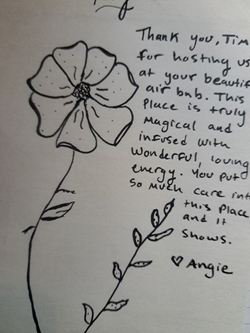 Thank you, Tim
for hosting us
at your beautif
air bnb. This
Place is truly
Magical and
infused with
Wonderful, loving
energy. You put
so much care int
this place
and it
shows.
♡ Angie